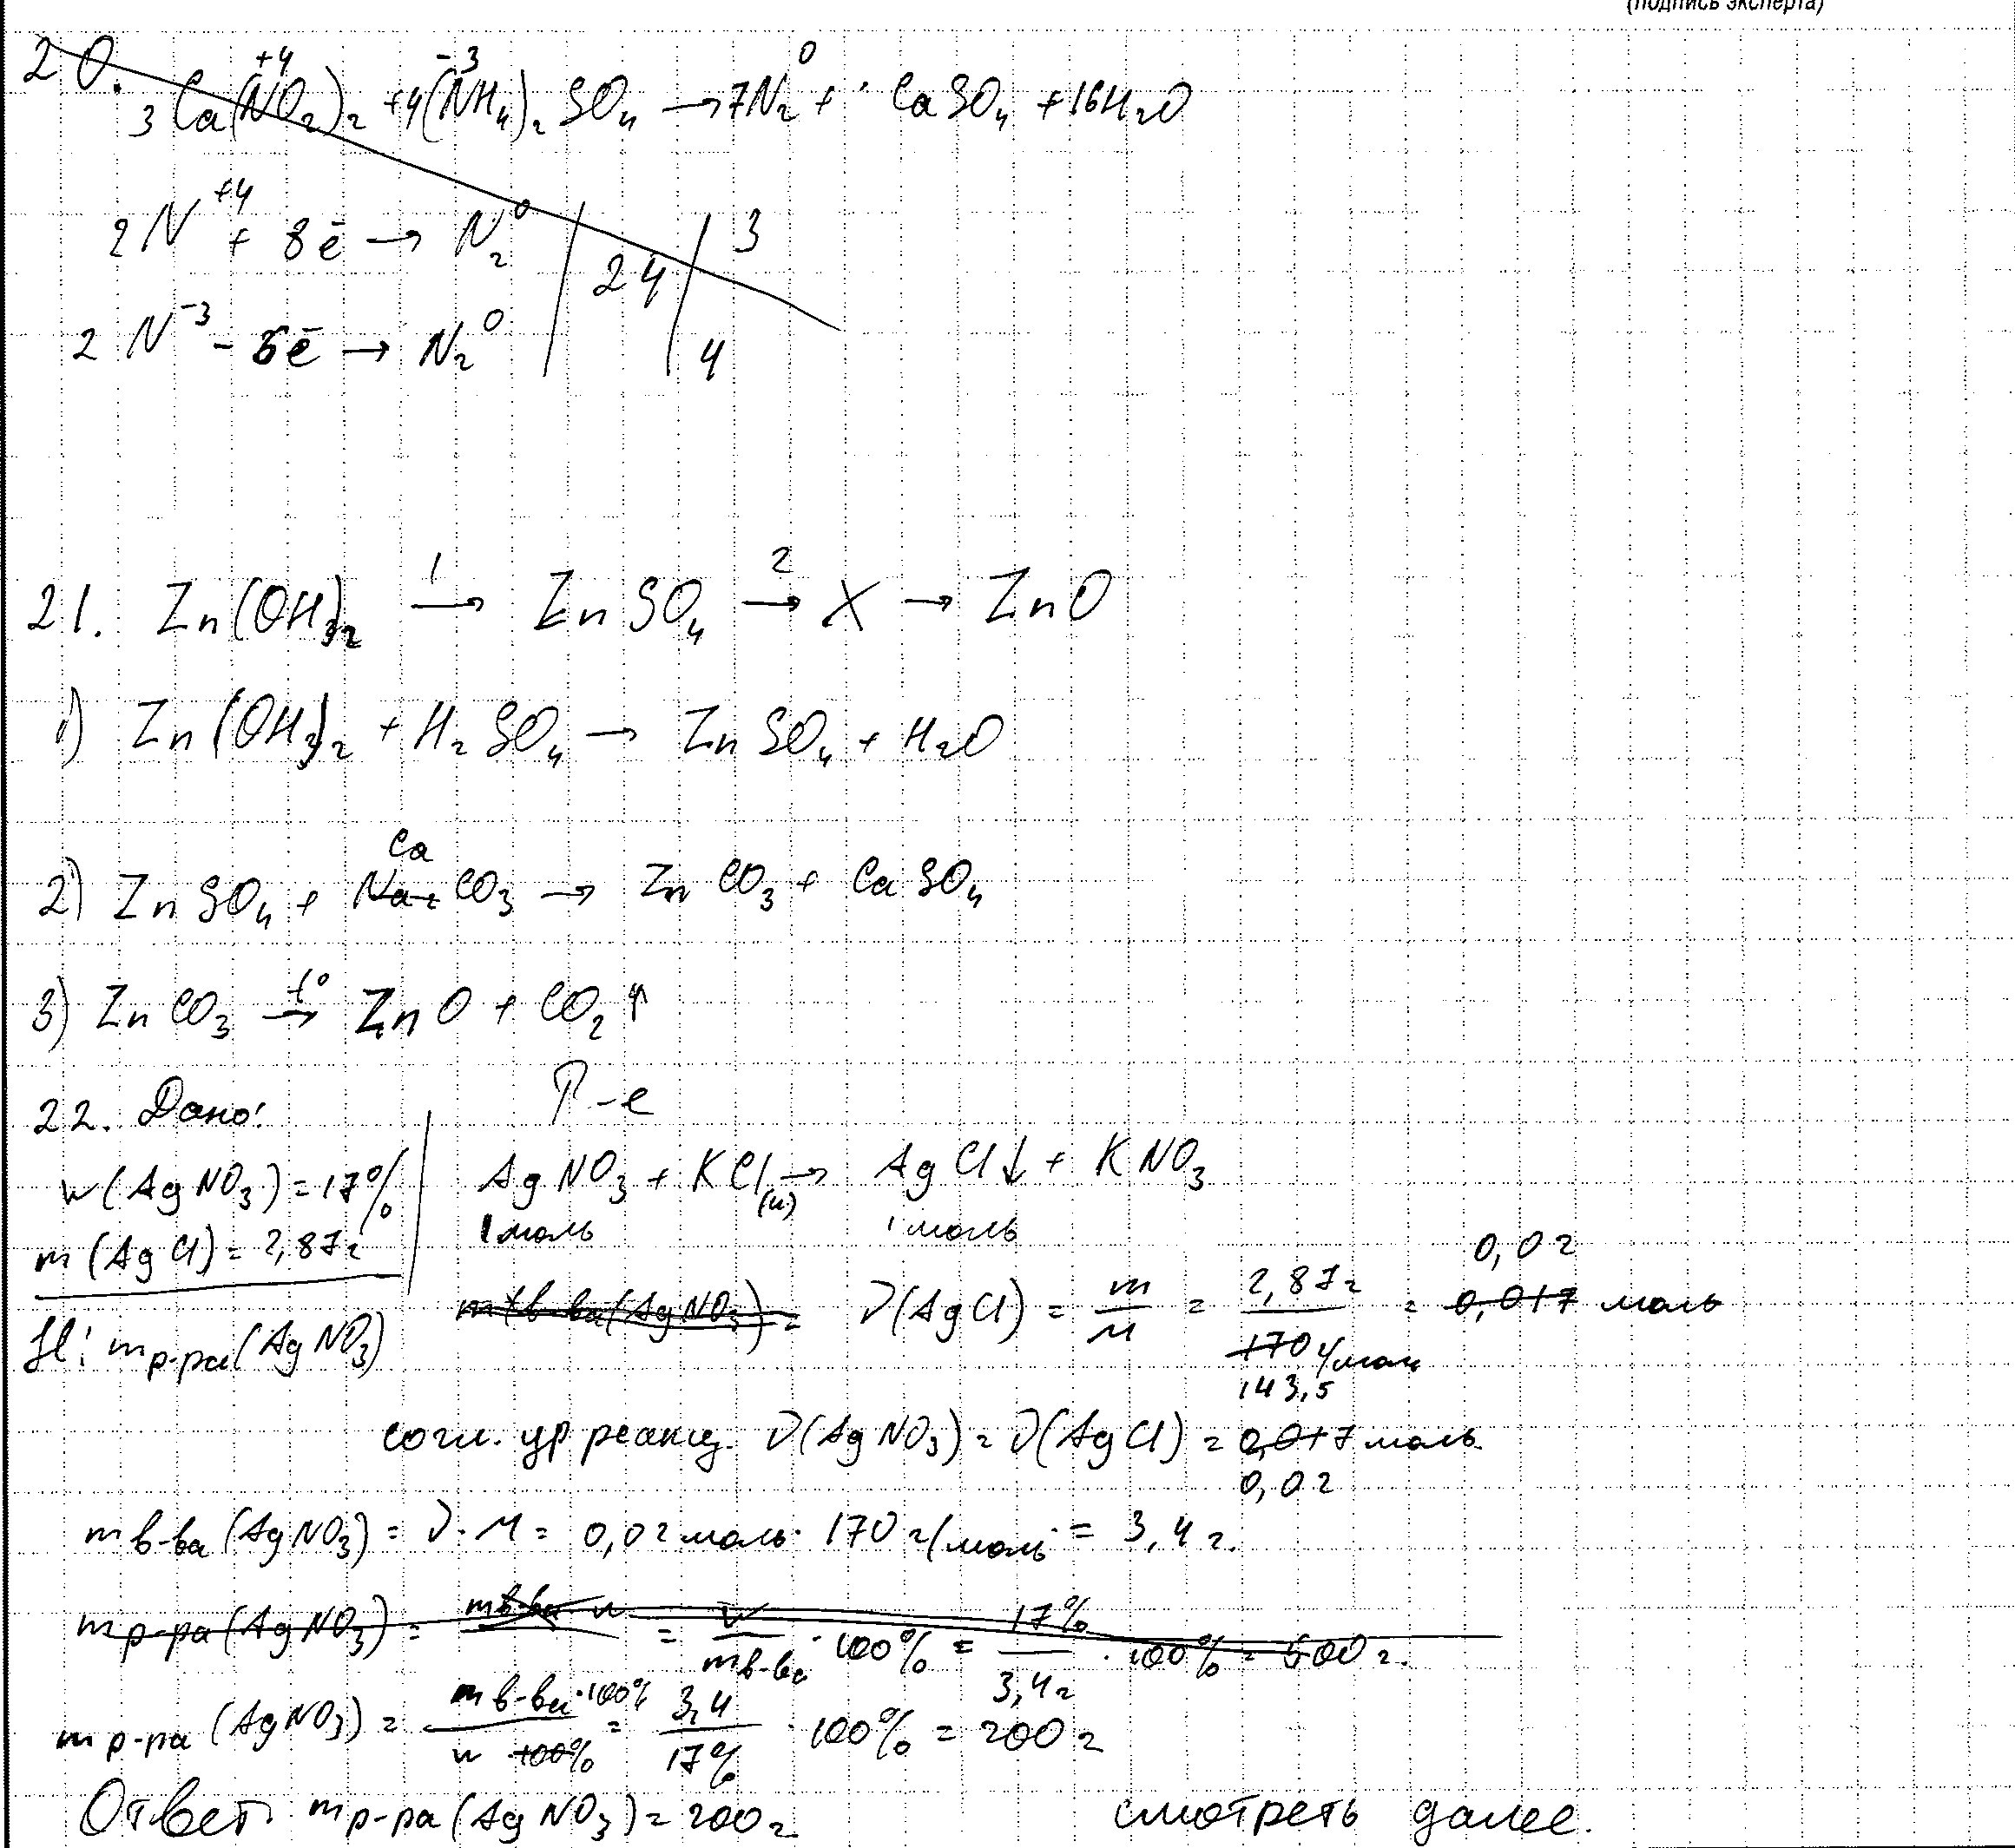 (подпись эксперта)
20. 3Ca(N⁺⁴O₂)₂ + 4(N⁻³H₄)₂SO₄ → 7N₂⁰ + CaSO₄ + 16H₂O
2N⁺⁴ + 8ē → N₂⁰ | 24 | 3
2N⁻³ - 6ē → N₂⁰ | | 4
21. Zn(OH)₂ →¹ ZnSO₄ →² X → ZnO
1) Zn(OH)₂ + H₂SO₄ → ZnSO₄ + H₂O
2) ZnSO₄ + ~~Na₂~~ Ca CO₃ → ZnCO₃ + CaSO₄
3) ZnCO₃ →t° ZnO + CO₂↑
22. Дано: Р-е
w(AgNO₃) = 17% AgNO₃ + KCl(и) → AgCl↓ + KNO₃
1 моль 1 моль
m(AgCl) = 2,87г
~~m в-ва(AgNO₃) =~~ ν(AgCl) = m/M = 2,87г / ~~170~~ 143,5 г/моль = ~~0,017~~ 0,02 моль
Н: m р-ра(AgNO₃)
согл. ур реакц. ν(AgNO₃) = ν(AgCl) = ~~0,017~~ 0,02 моль.
m в-ва(AgNO₃) = ν·M = 0,02 моль · 170 г/моль = 3,4 г.
~~m р-ра(AgNO₃) = m в-ва w = w/m в-ва · 100% = 17%/3,4г · 100% = 500 г.~~
m р-ра(AgNO₃) = m в-ва·100% / w ~~·100%~~ = 3,4/17% · 100% = 200 г
Ответ: m р-ра(AgNO₃) = 200 г смотреть далее.